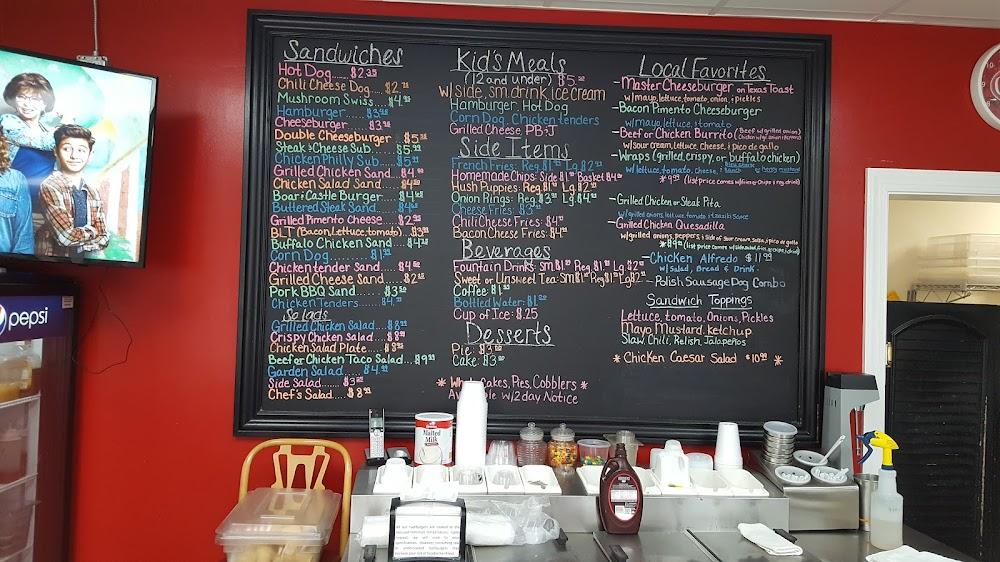 pepsi
Sandwiches
Hot Dog....... $2.35
Chili Cheese Dog.... $2.75
Mushroom Swiss.... $4.95
Hamburger..... $3.95
Cheeseburger..... $3.95
Double Cheeseburger.... $5.95
Steak & Cheese Sub... $5.99
Chicken Philly Sub.... $5.99
Grilled Chicken Sand.... $4.
Chicken Salad Sand.... $4.
Boar & Castle Burger.... $4.
Buttered Steak Sand.... $4.
Grilled Pimento Cheese.... $2.95
BLT (Bacon, Lettuce, tomato)... $3.
Buffalo Chicken Sand.... $4.
Corn Dog...... $1.
Chicken tender Sand.... $4.
Grilled Cheese Sand..... $2.
Pork BBQ Sand..... $3.
Chicken Tenders...... $4.
Salads
Grilled Chicken Salad.... $8.99
Crispy Chicken Salad.... $8.99
Chicken Salad Plate.... $8.
Beef or Chicken Taco Salad... $9.99
Garden Salad..... $4.99
Side Salad....... $3.
Chef's Salad..... $8.99
Kid's Meals
(12 and under) $5.50
w/side, sm. drink, ice cream
Hamburger, Hot Dog
Corn Dog, Chicken tenders
Grilled Cheese, PB&J
Side Items
French Fries: Reg. $1. Lg. $2.
Homemade Chips: Side $1. Basket $4.
Hush Puppies: Reg. $1. Lg. $2.
Onion Rings: Reg. $3. Lg. $4.
Cheese Fries: $3.
Chili Cheese Fries: $4.
Bacon Cheese Fries: $4.
Beverages
Fountain Drinks: Sm. $1. Reg. $1. Lg. $2.
Sweet or Unsweet Tea: Sm. $1. Reg. $1. Lg. $2.
Coffee: $1.
Bottled Water: $1.
Cup of Ice: $.25
Desserts
Pie: $3.
Cake: $3.
* Cakes, Pies, Cobblers *
w/2 day Notice
Local Favorites
-Master Cheeseburger on Texas Toast
w/mayo, lettuce, tomato, onion, & pickles
-Bacon Pimento Cheeseburger
w/mayo, lettuce, & tomato
-Beef or Chicken Burrito (Beef w/grilled onion)
w/sour cream, lettuce, cheese, & pico de gallo
-Wraps (grilled, crispy, or buffalo chicken)
w/lettuce, tomato, cheese, & Ranch or honey mustard
-Grilled Chicken or Steak Pita
w/grilled onions, lettuce, tomato & tzaziki sauce
-Grilled Chicken Quesadilla
w/grilled onions, peppers, & side of sour cream, salsa, & pico de gallo
-Chicken Alfredo $11.99
w/Salad, Bread & Drink.
-Polish Sausage Dog Combo
Sandwich Toppings
Lettuce, tomato, Onions, Pickles
Mayo, Mustard, Ketchup
Slaw, Chili, Relish, Jalapeños
* Chicken Caesar Salad $10.99 *
Malted
Milk